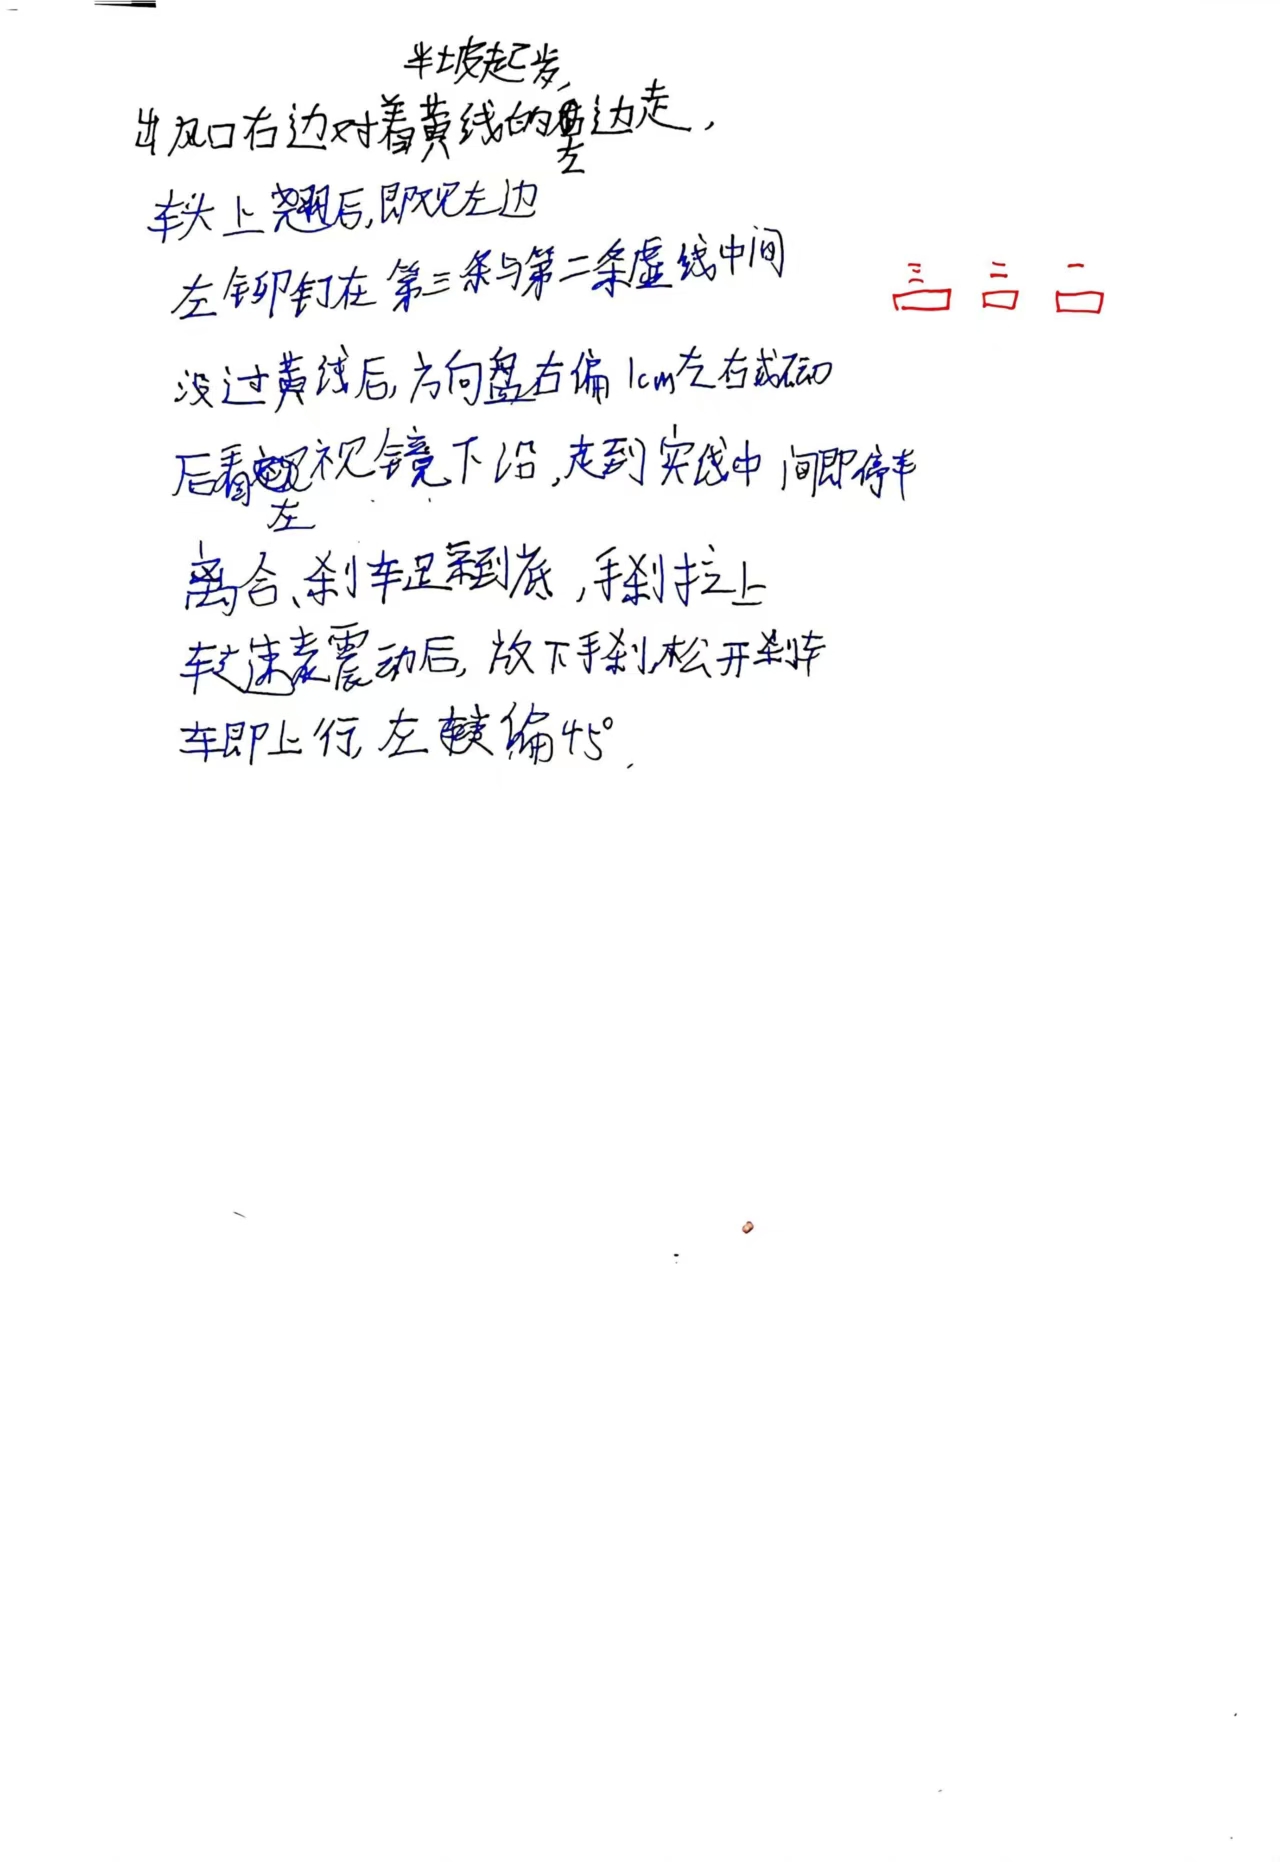 半坡起步,
出风口右边对着黄线的左边走,
车头上翘后,即观左边
左铆钉在第三条与第二条虚线中间
三 二 一
没过黄线后,方向盘右偏1cm左右或不动
后看左视镜下沿,走到实线中间即停车
离合、刹车踩到底,手刹拉上
车速表震动后,放下手刹,松开刹车
车即上行,左转偏45°.